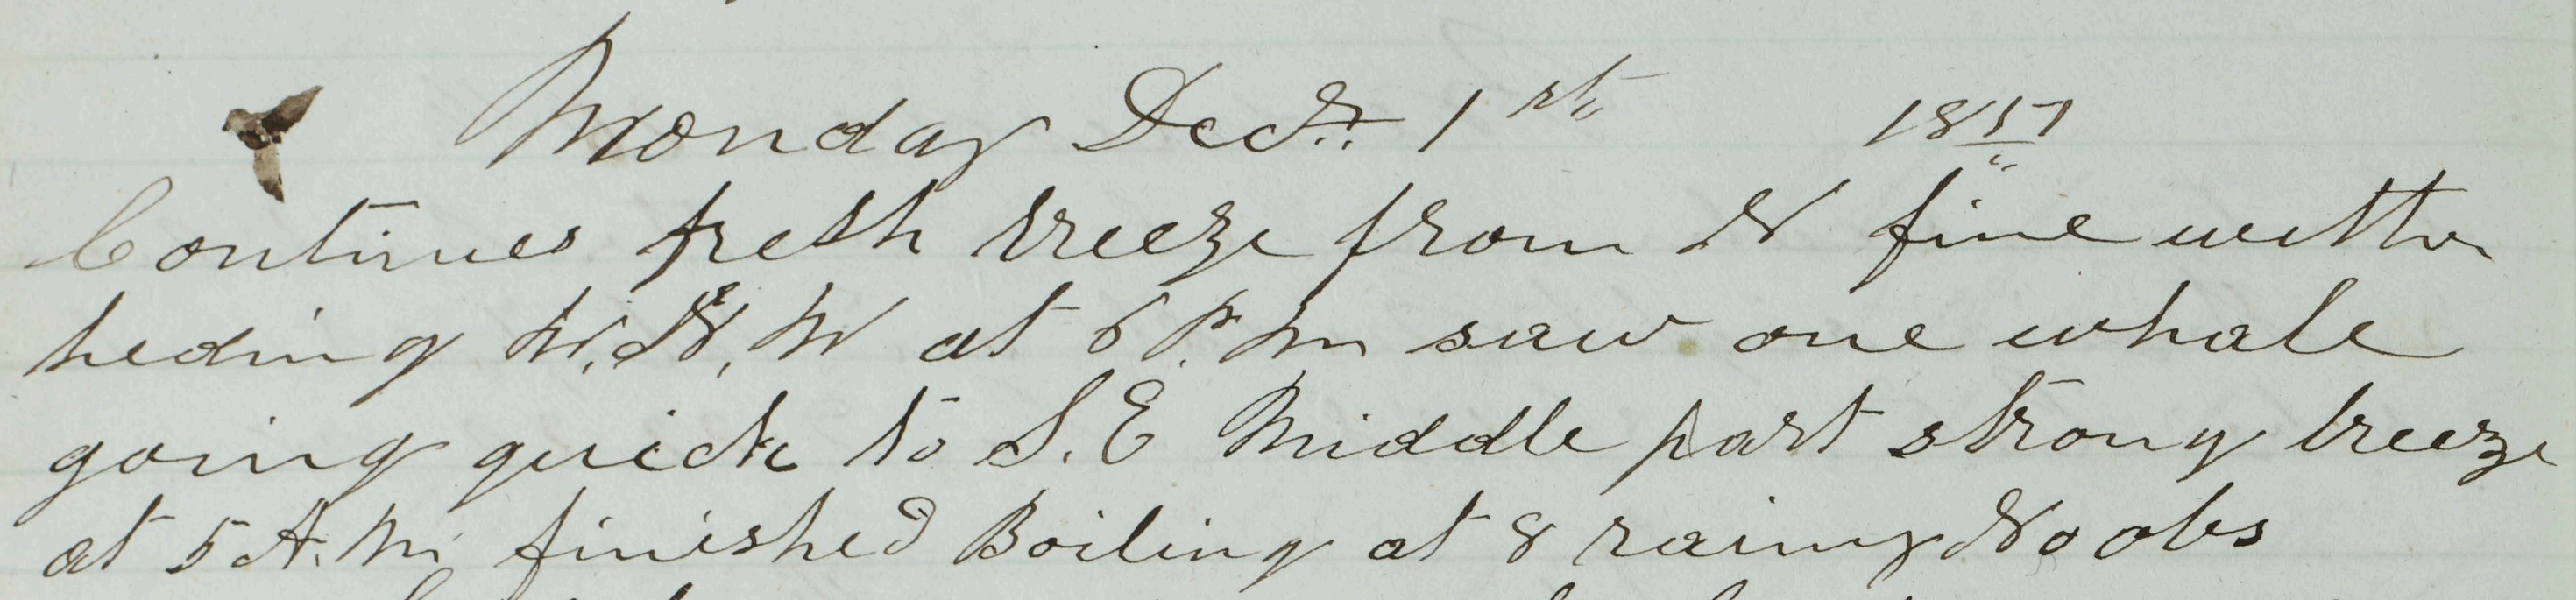 Monday Decr. 1st 1857
Continues fresh breeze from N fine wether
heding W.N.W at 6 P.M saw one whale
going quick to S.E Middle part strong breeze
at 5 A.M. finished Boiling at 8 rainy No obs